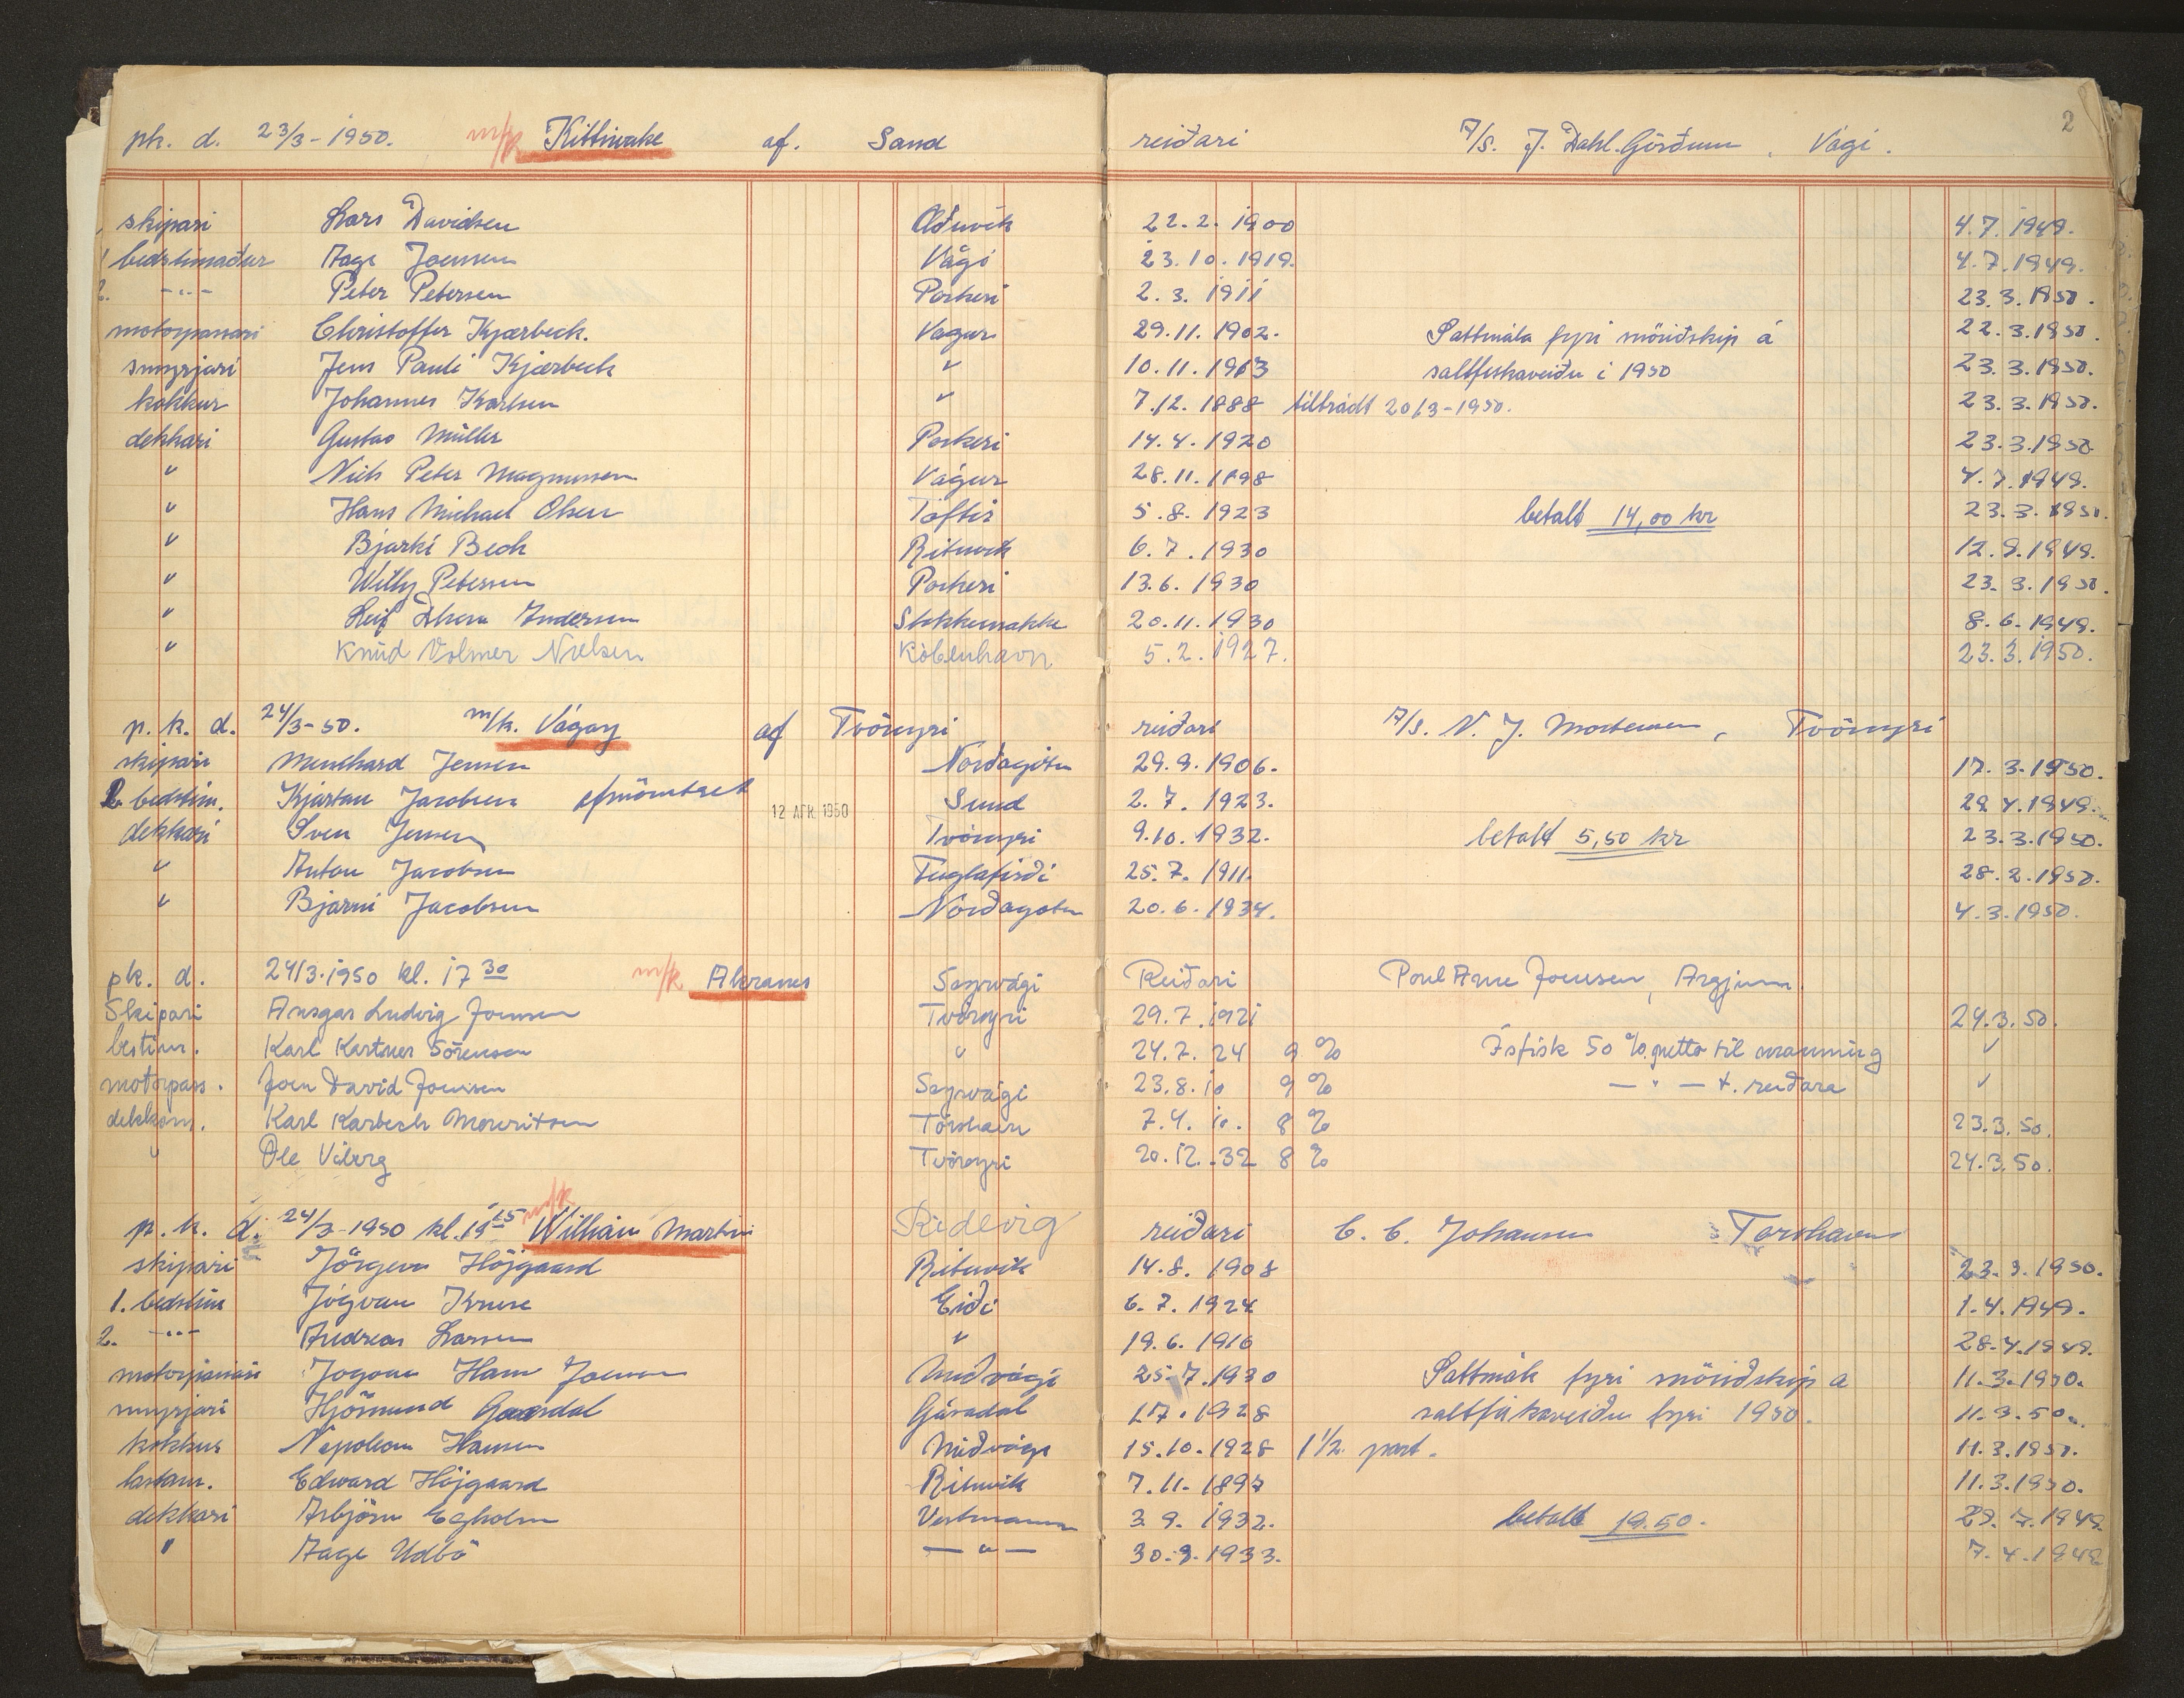 2
pk. d. 23/3-1950. m/k Kittiwake af. Sand reiðari A/S. J. Dahl. Görðum, Vági.
skipari Lars Davidsen Øðuvik 22.2.1900 4.7.1949.
1 bedstimaður Aage Joensen Vági 23.10.1919. 4.7.1949.
2. -"- Peter Petersen Porkeri 2.3.1911 23.3.1950.
motorpassari Christoffer Kjærbeck. Vagur 29.11.1902. Sáttmála fyri mönidskip á 22.3.1950.
smyrjari Jens Pauli Kjærbeck " 10.11.1913 saltfiskaveiðu i 1950 23.3.1950.
kokkur Johannes Karlsen " 7.12.1888 tiltrádt 20/3-1950. 23.3.1950.
dekkari Gustav Müller Porkeri 14.4.1920 23.3.1950.
" Niels Peter Magnussen Vágur 28.11.1898 4.7.1949.
" Hans Michael Olsen Toftir 5.8.1923 betalt 14,00 kr 23.3.1950.
" Bjarki Bech Rituvik 6.7.1930 12.9.1949.
" Willy Petersen Porkeri 13.6.1930 23.3.1950.
" Leif Andersen 20.11.1930 8.6.1949.
" Knud Volmer Nielsen Köbenhavn 5.2.1927. 23.3.1950.
p. k. d. 24/3-50. m/k. Vágoy af Tvöroyri reiðari A/S. N. J. Mortensen, Tvöroyri
skipari Meinhard Jensen Norðagötu 29.9.1906. 17.3.1950.
bedstim. Kjartan Jacobsen afmönstret 12 APR. 1950 Sund 2.7.1923. 29.4.1949.
dekkari Sven Jensen Tvöroyri 9.10.1932. betalt 5,50 kr 23.3.1950.
" Anton Jacobsen Fuglafirði 25.7.1911. 28.2.1950.
" Bjarni Jacobsen Norðagötu 20.6.1934. 4.3.1950.
pk. d. 24/3.1950 kl. 17 30 m/k Akranes Sørvági Reiðari Poul Arne Joensen, Argjum.
Skipari Ansgar Ludvig Joensen Tvöroyri 29.7.1921 24.3.50.
bestim. Karl Kartner Sörensen " 24.7.24 9 % Ísfisk 50 % netto til manning "
motorpass. Joen David Joensen Sørvági 23.8.10 9 % - " - t. reiðara "
dekkam. Karl Karbech Mouritsen Torshavn 7.4.10. 8 % 23.3.50.
" Ole Viberg Tvöroyri 20.12.32 8 % 24.3.50.
p. k. d. 24/3-1950 kl. 19 15 m/k William Martin Skidevig reiðari C. C. Johansen Torshavn
skipari Jörgen Höjgaard Rituvik 14.8.1908 23.3.1950.
1. bedstim Jógvan Kruse Eiði 6.7.1924 1.4.1949.
2. -"- Andreas Larsen " 19.6.1916 28.4.1949.
motorpassari Jogvan Hans Joensen Miðvági 25.7.1930 Sáttmála fyri mönidskip a 11.3.1950.
smyrjari Hjörmund Gaasdal Gásadal 17.1928 saltfiskaveiðu fyri 1950. 11.3.50.
kokkur Napoleon Hansen Miðvági 15.10.1928 1 1/2. part. 11.3.1950.
lastam. Edward Höjgaard Rituvik 7.11.1897 11.3.1950.
dekkari Asbjörn Egholm Vestmanna 3.9.1932. betalt 19.50. 29.7.1949.
" Aage Udbö - " - 30.9.1933. 7.4.1949